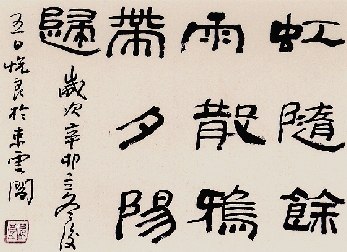 虹隨餘
雨散鴉
帶夕陽
歸
歲次辛卯立冬後
五日悅良於東雲閣